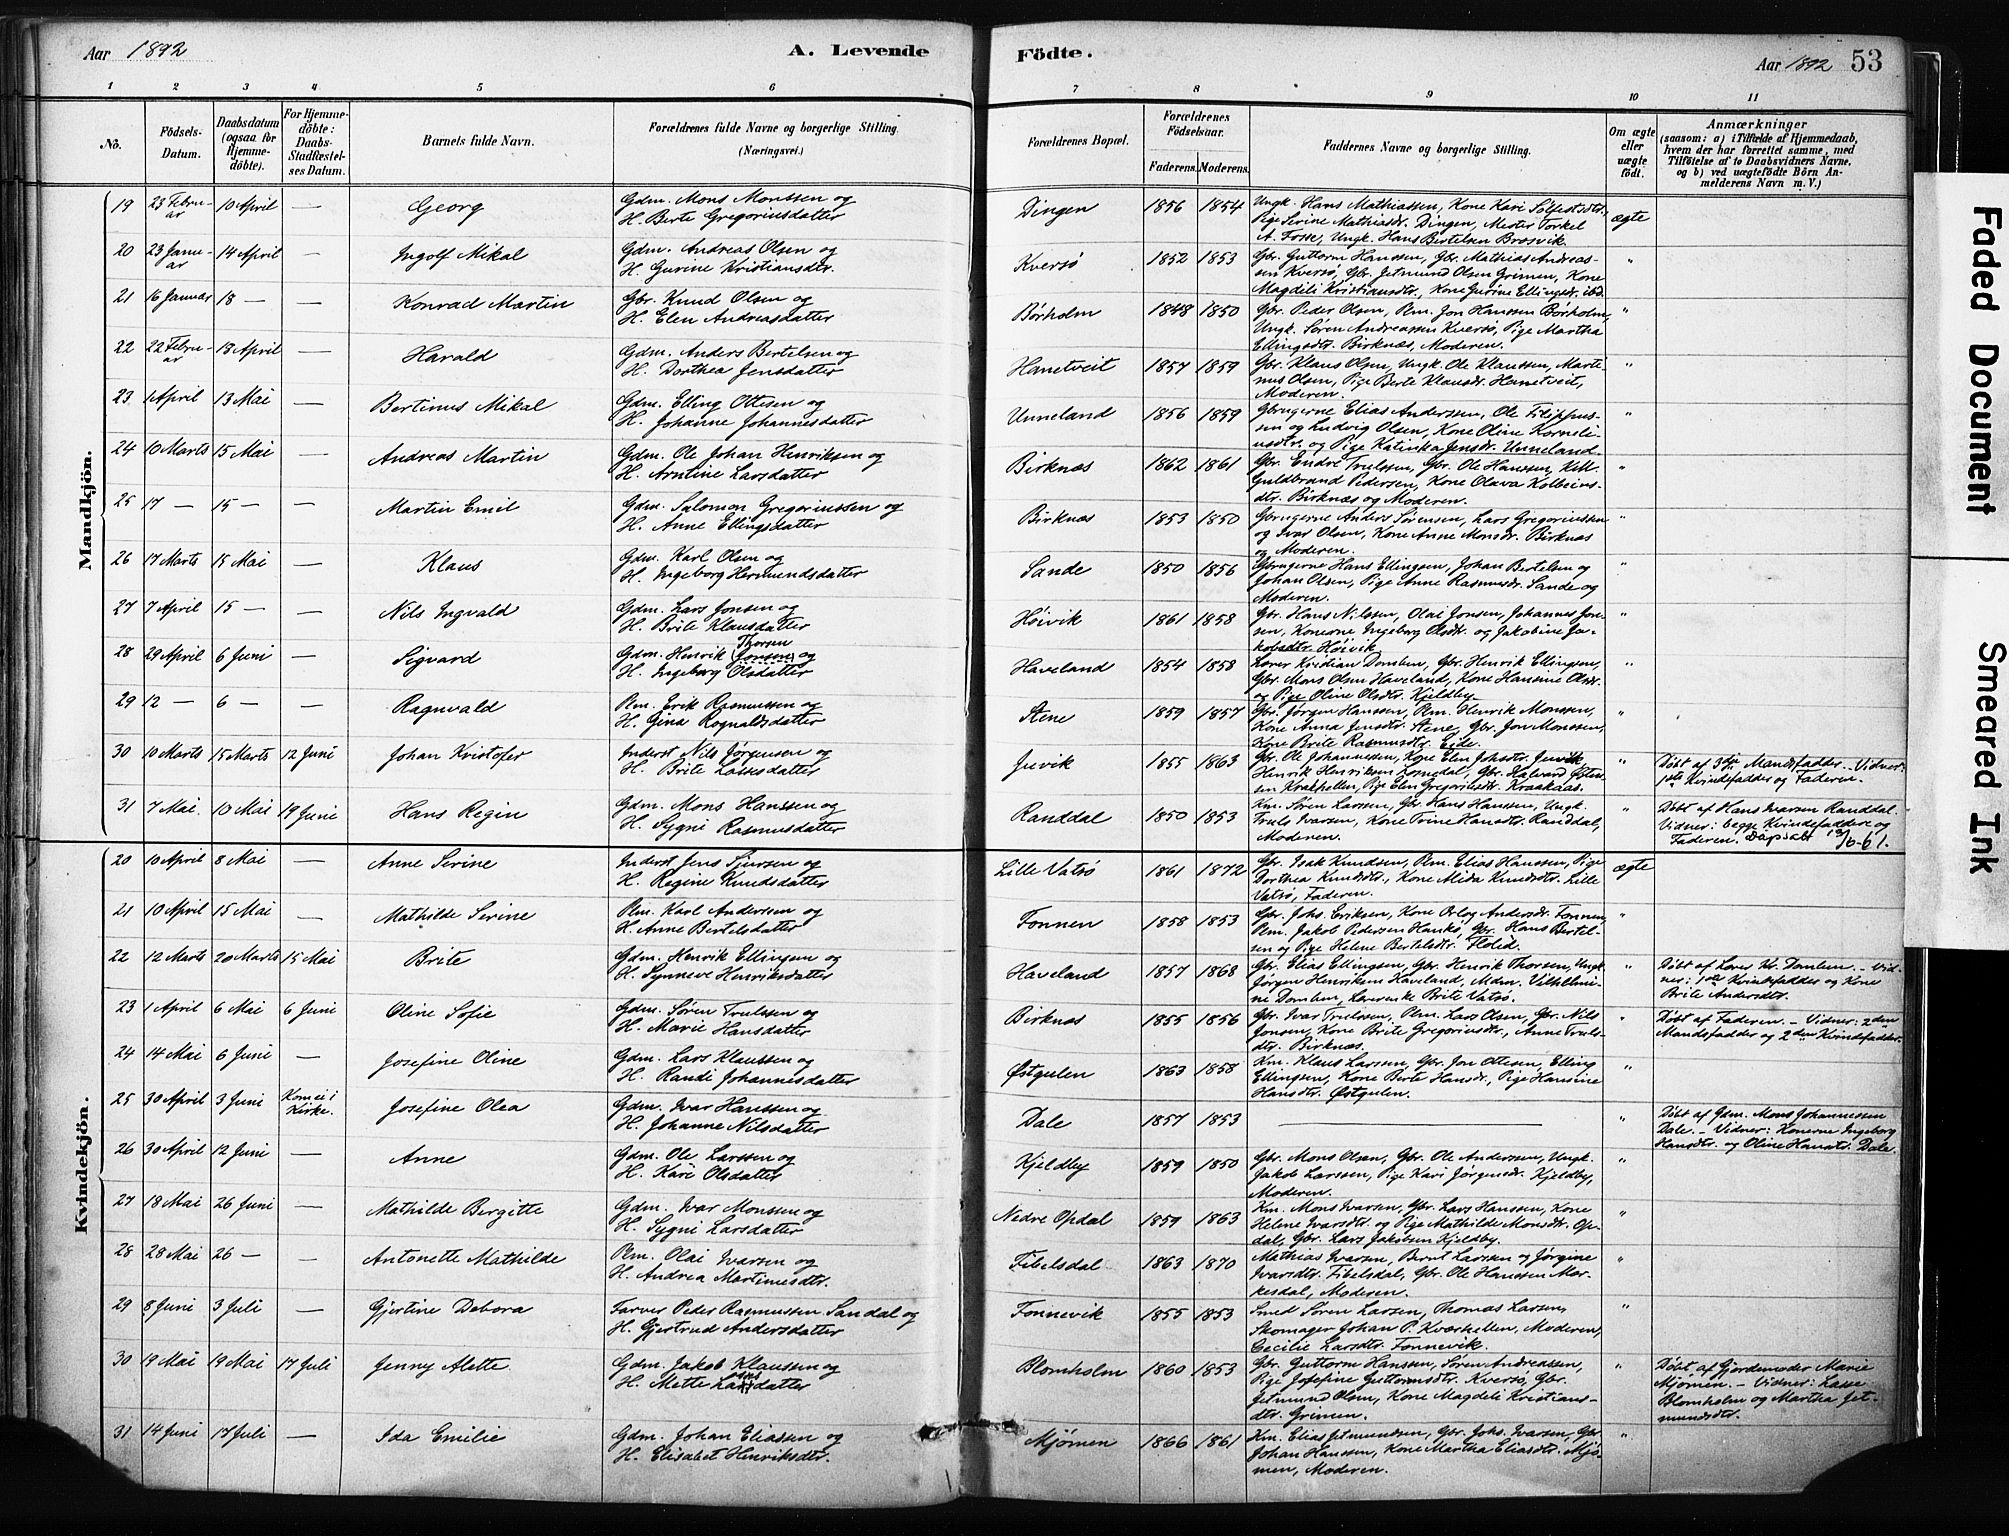 Aar 1892
A. Levende
Födte.
Aar 1892 53
1 2 3 4 5 6 7 8 9 10 11
No.
Födsels-
Datum.
Daabsdatum
(ogsaa for
Hjemme-
döbte).
For Hjemme-
döbte:
Daabs-
Stadfæstel-
ses Datum.
Barnets fulde Navn.
Forældrenes fulde Navne og borgerlige Stilling.
(Næringsvei.)
Forældrenes Bopæl.
Forældrenes
Födselsaar.
Faderens. Moderens.
Faddernes Navne og borgerlige Stilling.
Om ægte
eller
uægte
födt.
Anmærkninger
(saasom: a) i Tilfælde af Hjemmedaab,
hvem der har forrettet samme, med
Tilföielse af to Daabsvidners Navne,
og b) ved uægtefödte Börn An-
melderens Navn m. V.)
Mandkjön.
19 23 Febru-
ar 10 April — Georg
Gdm. Mons Monssen og
H. Berte Gregoriusdatter
Dingen 1856 1854
Ungk. Hans Mathiassen, Kone Kari Sølfestsdtr.,
Pige Serine Mathiasdr. Dingen, Mester Torkel
A. Fosse, Ungk. Hans Bertelsen Brosvik.
ægte
20 23 Janu-
ar 14 April — Ingolf Mikal
Gdm. Andreas Olsen og
H. Gurine Kristiansdtr.
Kversø 1852 1853
Gbr. Guttorm Hanssen, Gbr. Mathias Andreas-
sen Kversø, Gbr. Jetmund Olsen Grimen, Kone
Magdeli Kristiansdtr., Kone Gurine Ellingsdr. ibd.
"
21 16 Januar 18 — — Konrad Martin
Gbr. Knud Olsen og
H. Elen Andreasdatter
Børholm 1848 1850
Gbr. Peder Olsen, Plm. Jon Hanssen Børholm,
Ungk. Søren Andreassen Kversø, Pige Martha
Ellingsdtr. Birknæs, Moderen.
"
22 22 Febru-
ar 18 April — Harald
Gdm. Anders Bertelsen og
H. Dorthea Jensdatter
Hanetveit 1857 1859
Gbr. Klaus Olsen, Ungk. Ole Klaussen, Marte-
nus Olsen, Pige Berte Klausdr. Hanetveit,
Moderen.
"
23 1 April 13 Mai — Bertinus Mikal
Gdm. Elling Ottesen og
H. Johanne Johannesdatter
Unneland 1856 1859
Gbrugerne Elias Anderssen, Ole Filippus-
sen og Ludvig Olsen, Kone Oline Korneli-
usdtr. og Pige Katinka Jensdr. Unneland.
"
24 10 Marts 15 Mai — Andreas Martin
Gdm. Ole Johan Henriksen og
H. Arntine Larsdatter
Birknæs 1862 1861
Gbr. Endre Trulssen, Gbr. Ole Hanssen,
Guldbrand Pedersen, Kone Olava Kolbeins-
dtr. Birknæs og Moderen.
"
25 17 — 15 — — Martin Emil
Gdm. Salomon Gregoriussen og
H. Anne Ellingsdatter
Birknæs 1853 1850
Gbrugerne Anders Sørensen, Lars Gregoriussen
og Ivar Olsen, Kone Anne Monsdr. Birknæs
og Moderen.
"
26 17 Marts 15 Mai — Klaus
Gdm. Karl Olsen og
H. Ingeborg Hermundsdatter
Sande 1850 1856
Gbrugerne Hans Ellingsen, Johan Bertelsen og
Johan Olsen, Pige Anne Rasmusdr. Sande og
Moderen.
"
27 7 April 15 — — Nils Ingvald
Gdm. Lars Jonsen og
H. Brite Klausdatter
Høivik 1861 1858
Gbr. Hans Nilssen, Olai Jonsen, Johannes Jon-
sen, Konerne Ingeborg Olsdtr. og Jakobine Ja-
kobsdtr. Høivik
28 29 April 6 Juni — Sigvard
Thorsen
Gdm. Henrik (Jonsen) og
H. Ingeborg Olsdatter
Haveland 1854 1858
Lærer Kristian Domben, Gbr. Henrik Ellingsen,
Gbr. Mons Olsen Haveland, Kone Hansine Olsdr.
og Pige Oline Olsdtr. Kjeldby
"
29 12 — 6 — — Ragnvald
Plm. Erik Rasmussen og
H. Gina Rognaldsdatter
Stene 1859 1857
Gbr. Jørgen Hanssen, Plm. Henrik Monssen,
Kone Anna Jensdtr. Stene, Gbr. Jon Monssen,
Kone Brite Rasmusdtr. Eide.
"
30 10 Marts 15 Marts 12 Juni Johan Kristofer
Inderst Nils Jørgensen og
H. Brite Lassesdatter
Juvik 1855 1863
Gbr. Ole Johannessen, Kone Elen Johsdr. Juvik,
Henrik Henriksen Lonedal, Gbr. Halvard Østen-
sen Krakhellen, Pige Elen Gregoriusdtr. Kraakaas.
"
Døbt af 3die Mandsfadder. — Vidner:
1ste Kvindefadder og Faderen.
31 7 Mai. 10 Mai 19 Juni Hans Regin
Gdm. Mons Hanssen og
H. Sygni Rasmusdatter
Randdal 1850 1853
Km. Søren Larsen, Gbr. Hans Hanssen, Ungk.
Truls Ivarsen, Kone Trine Hansdtr. Randdal,
Moderen.
"
Døbt af Hans Ivarsen Randdal.
Vidner: begge Kvindefaddere og
Faderen. Dåpsatt 13/6-61.
Kvindekjön.
20 10 April 8 Mai — Anne Serine
Inderst Jens Sjursen og
H. Regine Knudsdatter
Lille Vatsø 1861 1872
Gbr. Isak Knudsen, Plm. Elias Hanssen, Pige
Dorthea Knudsdtr., Kone Mida Knudsdtr. Lille
Vatsø, Faderen.
ægte
21 10 April 15 Mai — Mathilde Serine
Plm. Karl Anderssen og
H. Anne Bertelsdatter
Fonnen 1858 1853
Gbr. Johs. Eriksen, Kone Orlog Andersdr. Fonnen,
Plm. Jakob Pedersen Hankø, Gbr. Hans Bertel-
sen og Pige Helene Bertelsdtr. Flolid.
"
22 12 Marts 20 Marts 15 Mai Brite
Gdm. Henrik Ellingsen og
H. Synneve Henriksdatter
Haveland 1857 1868
Gbr. Elias Ellingsen, Gbr. Henrik Thorsen, Ungk.
Jørgen Henriksen Haveland, Mdm. Vilhelmi-
ne Domben, Lærerenke Brite Vatsø.
"
Døbt af Lærer Kr. Domben. — Vid-
ner: 1ste Kvindefadder og Kone
Brite Andersdtr.
23 1 April 6 Mai 6 Juni Oline Sofie
Gdm. Søren Trulssen og
H. Marie Hansdatter
Birknæs 1855 1856
Gbr. Ivar Trulssen, Plm. Lars Olsen, Gbr. Nils
Jonsen, Kone Brite Gregoriusdtr., Anne Truls-
dtr. Birknæs.
"
Døbt af Faderen. — Vidner: 2den
Mandsfadder og 2den Kvindefadder.
24 14 Mai 6 Juni — Josefine Oline
Gdm. Lars Klaussen og
H. Randi Johannesdatter
Østgulen 1863 1858
Km. Klaus Larsen, Gbr. Jon Ottesen, Elling
Ellingsen, Kone Berte Hansdr., Pige Hansine
Hansdtr. Østgulen.
"
25 30 April 3 Juni Kom ei i
Kirke. Josefine Olea
Gdm. Ivar Hanssen og
H. Johanne Nilsdatter
Dale 1857 1853
—
"
Døbt af Gdm. Mons Johannessen
Dale. — Vidner: Konerne Ingeborg
Hansdtr. og Oline Hansdtr. Dale.
26 30 April 12 Juni — Anne
Gdm. Ole Larssen og
H. Kari Olsdatter
Kjeldby 1859 1850
Gbr. Mons Olsen, Gbr. Ole Anderssen, Ungk.
Jakob Larssen, Pige Kari Jørgensdr. Kjeldby,
Moderen.
"
27 18 Mai 26 Juni — Mathilde Bergitte
Gdm. Ivar Monssen og
H. Sygni Larsdatter
Nedre Opdal 1859 1863
Km. Mons Ivarsen, Gbr. Lars Hanssen, Kone
Helene Ivarsdtr. og Pige Mathilde Monsdtr. Op-
dal, Gbr. Lars Jakobsen Kjeldby.
"
28 28 Mai 26 — — Antonette Mathilde
Plm. Olai Ivarsen og
H. Andrea Martinusdtr.
Fibelsdal 1863 1870
Mathias Ivarsen, Bernt Larsen og Jørgine
Ivarsdtr. Fibelsdal, Gbr. Ole Hanssen Mar-
kesdal, Moderen.
"
29 8 Juni 3 Juli — Gjertine Debora
Farver Peder Rasmussen Sandal og
H. Gjertrud Andersdatter
Fonnevik 1855 1853
Smed Søren Larsen, Thomas Larsen,
Skomager Johan P. Kværhellen, Moderen,
Cecilie Larsdtr. Fonnevik.
"
30 19 Mai 19 Mai 17 Juli Jenny Alette
Gdm. Jakob Klaussen og
H. Mette Larsdatter
Blomholm 1860 1853
Gbr. Guttorm Hanssen, Søren Andreassen,
Pige Josefine Guttormsdtr. Kversø, Gbr.
Jetmund Olsen, Kone Magdeli Kristians-
dtr. Grimen.
"
Døbt af Gjordemoder Marie
Mjømen. — Vidner: Lasse
Blomholm og Martha Jet-
mundsdtr.
31 14 Juni 17 Juli — Ida Emilie
Gdm. Johan Eliassen og
H. Elisabet Henriksdtr.
Mjømen 1866 1861
Km. Elias Jetmundsen, Gbr. Johs. Ivarsen, Gbr.
Johan Hanssen, Kone Martha Eliasdtr. Mjø-
men, Moderen.
"
Faded Document
Smeared Ink